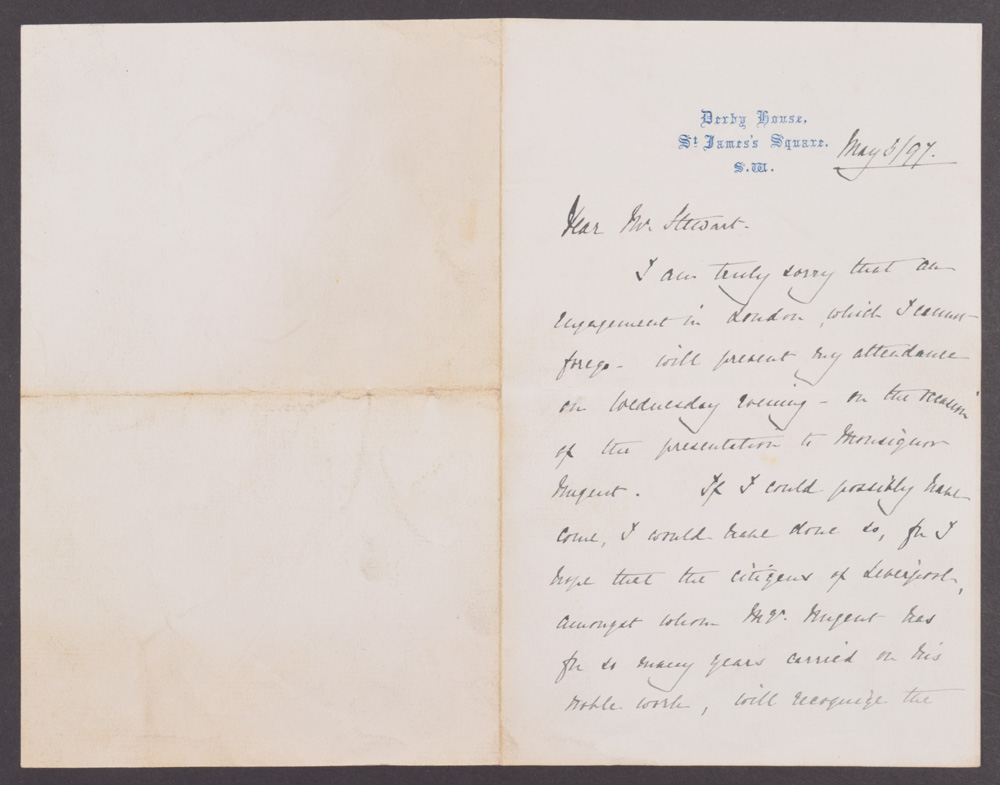 Derby House,
St James's Square.
S.W.
May 3/97.
Dear Mr. Stewart.
I am truly sorry that an
engagement in London, which I cannot
forego - will prevent my attendance
on Wednesday evening - on the occasion
of the presentation to Monsignor
Nugent. If I could possibly have
come, I would have done so, for I
hope that the citizens of Liverpool,
amongst whom Mgr. Nugent has
for so many years carried on his
noble work, will recognize the